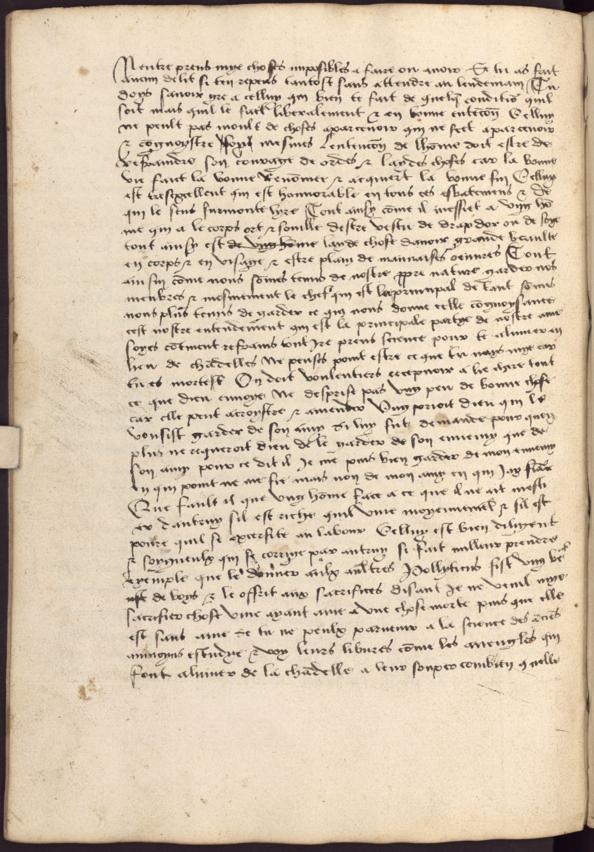 Nentre prens mye choses imposibles a faire ou auoir Se tu as fait
aucun delit si ten repens tantost sans attendre au lendemain Tu
doys sauoir gre a celluy qui bien te fait de quelq conditio quil
soit mais quil le face liberalement & en bonne entecon Celluy
ne peult pas moult de choses aparceuoir qui ne scet aparceuoir
& cognoystre soy mesmes Lentencon de lhome doit estre de
refraindre son courage de ordes & laides choses car la bonne
vie fait la bonne renomee & acquiert la bonne fin Celluy
est tresexellent qui est honnorable en tous ces esbatemens & de
qui le sens surmonte lyre Tout ainsy come il messiet a vng ho
me qui a le corps ort & soulle destre vestu de drap dor ou de soye
tout ainsy est laide chose dauoir grande beaulte
en corps & en visage & estre plain de mauuaises oeuures Tout
ain sin come nous somes tenus de nostre ppre nature garder nos
menbres & mesmement le chef qui est le principal de tant somes
nous plus tenus de garder ce qui nous donne celle cognoyssance
cest nostre entendement qui est la principale partye de nostre ame
soyes coment refrains ton Ire prens science pour te alumer en
lieu de chadelles Ne penses point estre ce que tu nays mye car
tu es mortel On doit voulentiers recepuoir a lie chyre tout
ce que dieu enuoye Ne desprise pas vng peu de bonne chose
car elle peut accroystre & amender Vng prioit dieu qui le
voulsist garder de son amy Si luy fut demande pour quoy
plus ne requeroit dieu de le garder de son ennemy que de
son amy pour ce dit il Je me puis bien garder de mon ennemy
en qui point ne me fie mais non de mon amy en qui Jay fiace
Que fault il que vng home face a ce que il ne ait mesti
er dautruy sil est riche quil viue moyennemet & sil est
poure quil se exersite au labour Celluy est bien diligent
& songneulx qui se corrige par autruy Si fait millour prendre
exemple que le donner aulx aultres Pollyticus fist vng ve
de boys & le offrit aux sacrifices disant Je ne veuil mye
sacrifier chose viue ayant ame a vne chose morte puis que elle
est sans ame Se tu ne peulx paruenir a la science des acies
estudye & voy leurs liures come les aueugles qui
font alumer de la chadelle a leur souper combien quelle